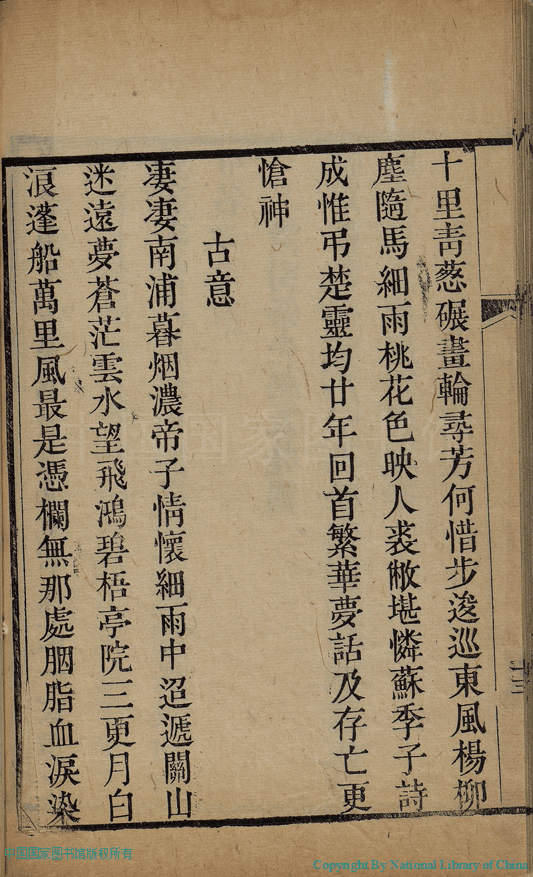 十里靑葱碾畫輪尋芳何惜步逡巡東風楊柳
塵隨馬細雨桃花色映人裘敝堪憐蘇季子詩
成惟弔楚靈均廿年回首繁華夢話及存亡更
愴神
古意
凄凄南浦暮烟濃帝子情懷細雨中迢遞關山
迷遠夢蒼茫雲水望飛鴻碧梧亭院三更月白
浪蓬船萬里風最是憑欄無那處胭脂血淚染
中国国家图书馆版权所有
Copyright By National Library of China